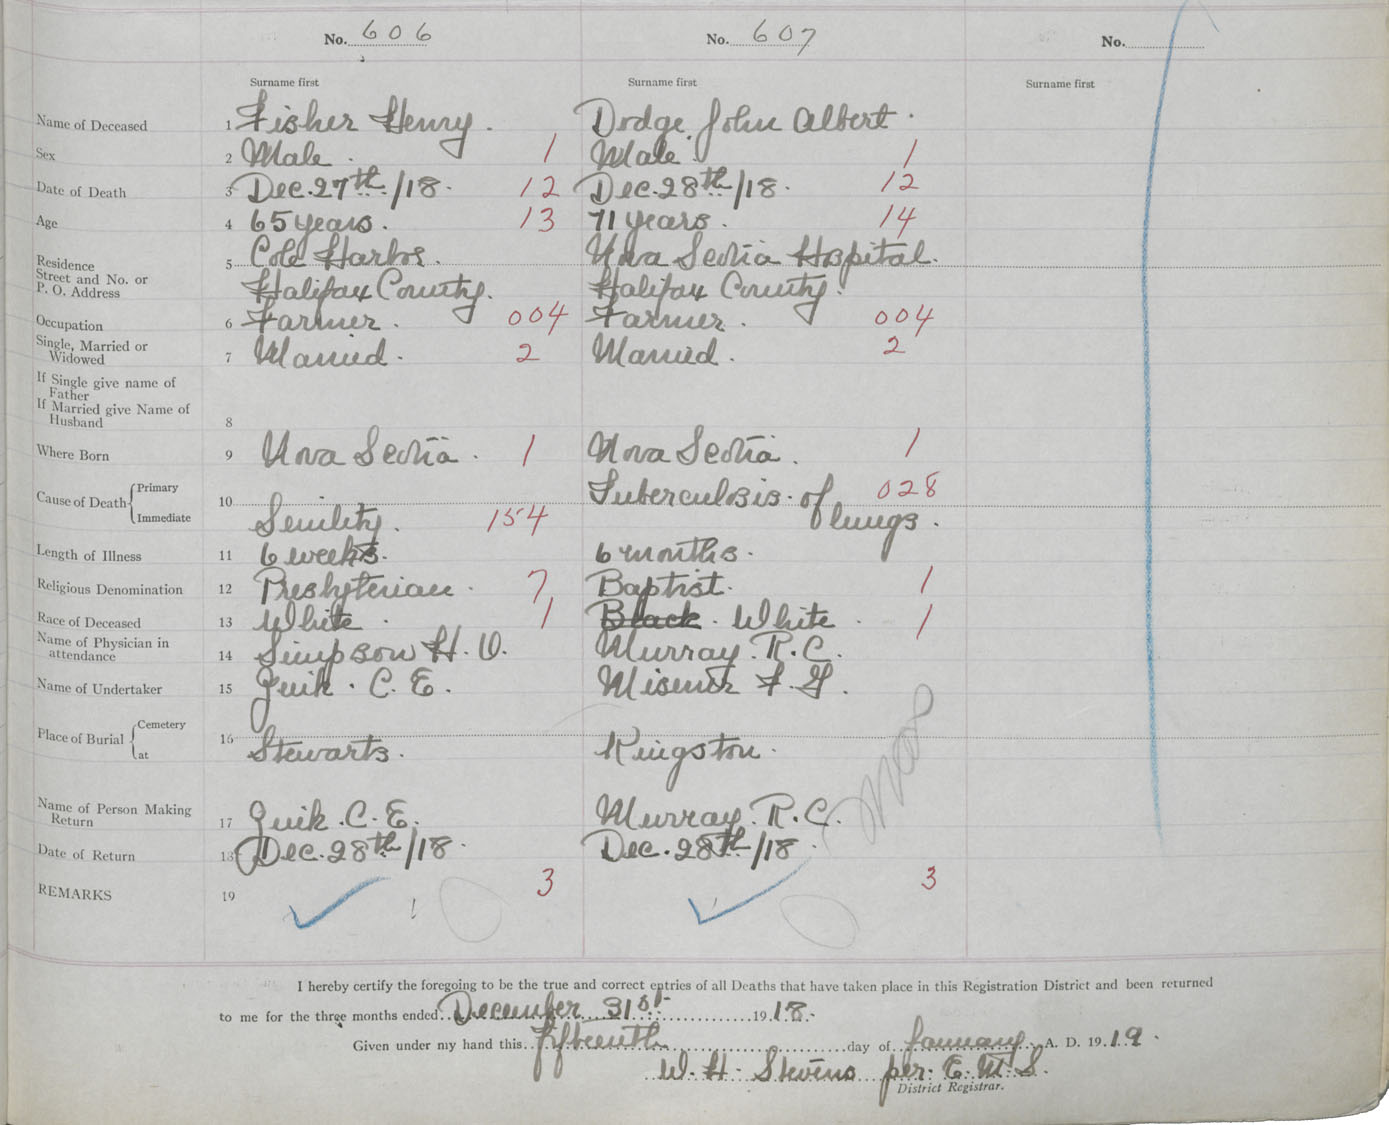 No. 606 No. 607 No.
Surname first Surname first Surname first
Name of Deceased 1 Fisher Henry. Dodge John Albert.
Sex 2 Male. 1 Male. 1
Date of Death 3 Dec. 27th/18. 12 Dec. 28th/18. 12
Age 4 65 years. 13 71 years. 14
Residence 5 Cole Harbor. Nova Scotia Hospital.
Street and No. or
P. O. Address Halifax County. Halifax County.
Occupation 6 Farmer. 004 Farmer. 004
Single, Married or
Widowed 7 Married. 2 Married. 2
If Single give name of
Father
If Married give Name of
Husband 8
Where Born 9 Nova Scotia. 1 Nova Scotia. 1
Cause of Death Primary 10 Tuberculosis of 028
Immediate Senility. 154 lungs.
Length of Illness 11 6 weeks. 6 months.
Religious Denomination 12 Presbyterian. 7 Baptist. 1
Race of Deceased 13 White. 1 Black. White. 1
Name of Physician in
attendance 14 Simpson H. O. Murray. R. C.
Name of Undertaker 15 C. E. Misener F. G.
Place of Burial Cemetery 16
at Stewarts. Kingston.
Name of Person Making
Return 17 C. E. Murray. R. C.
Date of Return 18 Dec. 28th/18. Dec. 28th/18.
REMARKS 19 3 3
I hereby certify the foregoing to be the true and correct entries of all Deaths that have taken place in this Registration District and been returned
to me for the three months ended December 31st 1918.
Given under my hand this fifteenth day of January A. D. 1919.
W. H. Stevens per. E. M. S.
District Registrar.